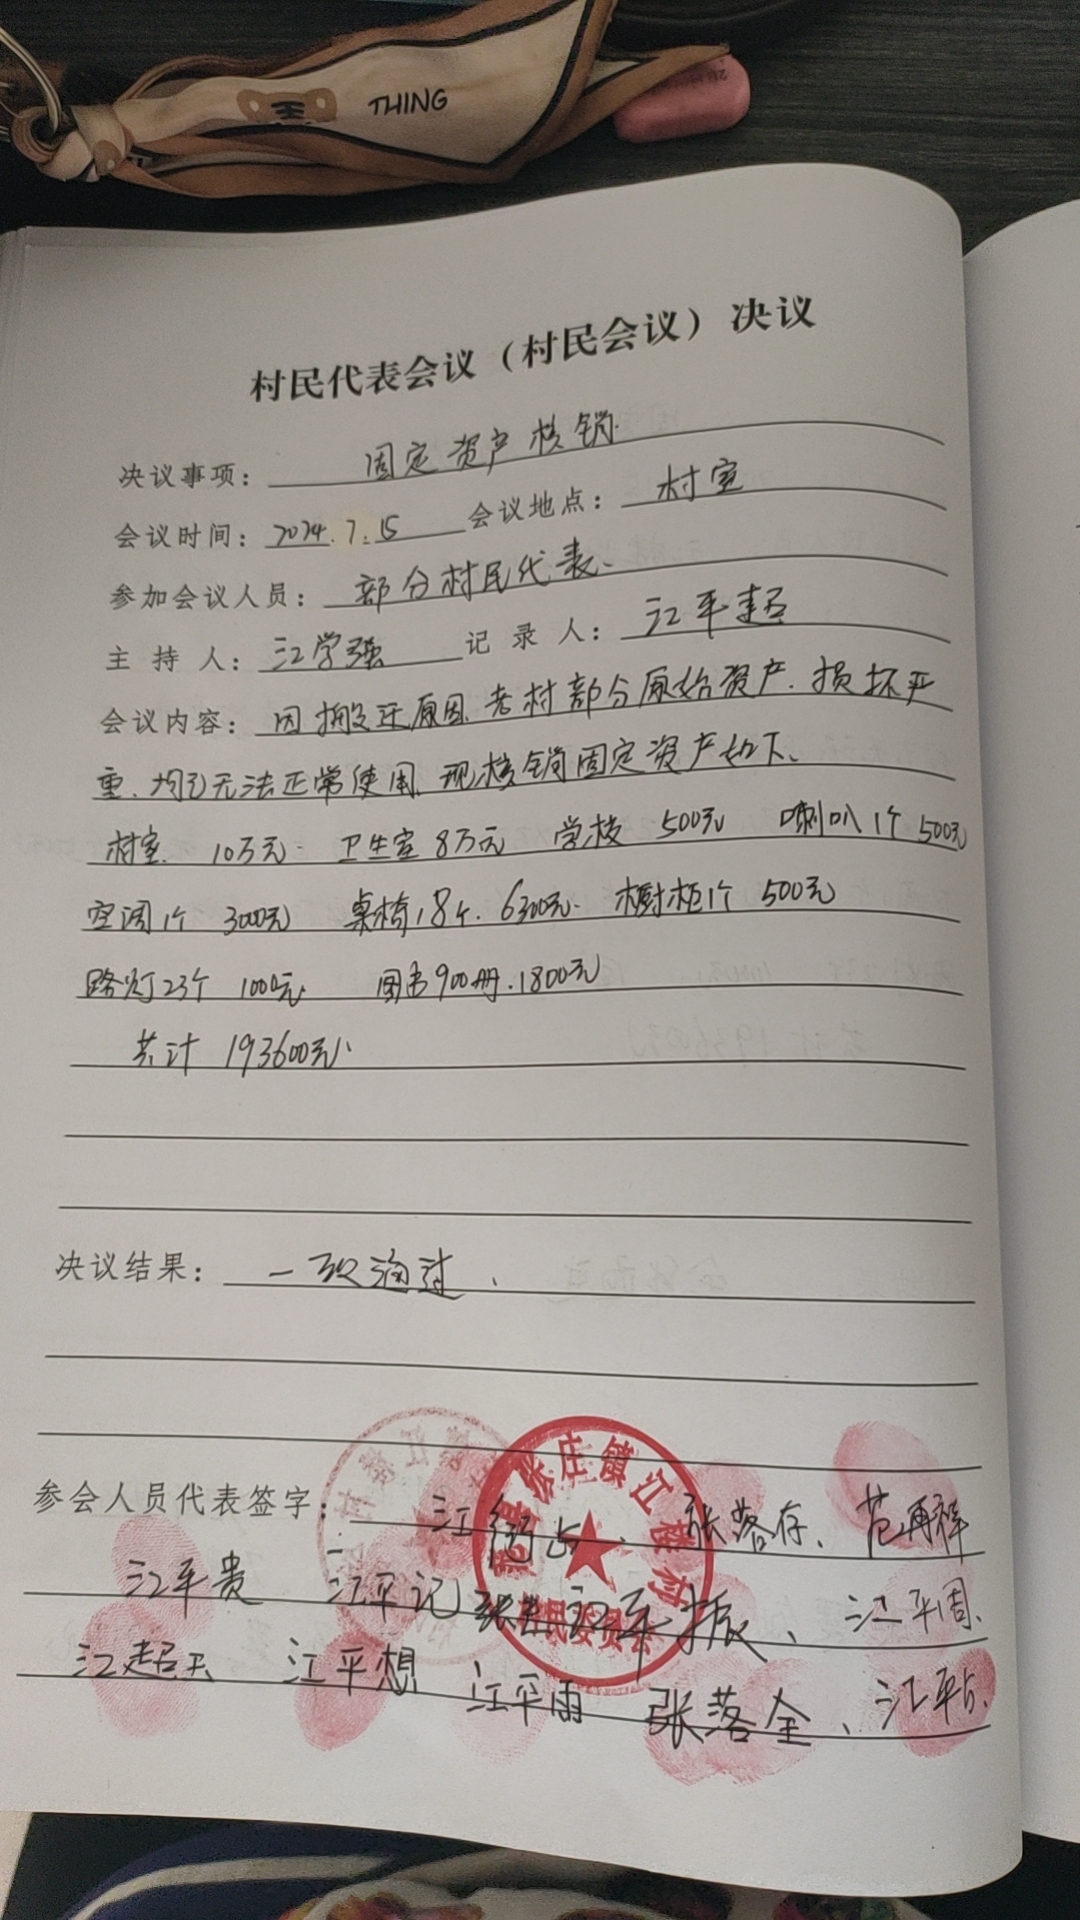 THING
村民代表会议（村民会议）决议
决议事项： 固定资产核销
会议时间： 2024.7.15 会议地点： 村室
参加会议人员： 部分村民代表、
主持人： 江学强 记录人： 江平超
会议内容： 因搬迁原因，老村部分原始资产，损坏严
重，均已无法正常使用，现核销固定资产如下、
村室 10万元 卫生室 8万元 学校 500元 喇叭1个 500元
空调1个 3000元 桌椅18个. 6300元 橱柜1个 500元
路灯23个 1000元 图书900册.1800元
共计 193600元
决议结果： 一致通过、
参会人员代表签字： 张落存、范再祥
张庄镇江楼村
村民委员会
江平贵 江平记 江平振、江平周、
江超玉 江平想 江平雨 张落全、江平占、